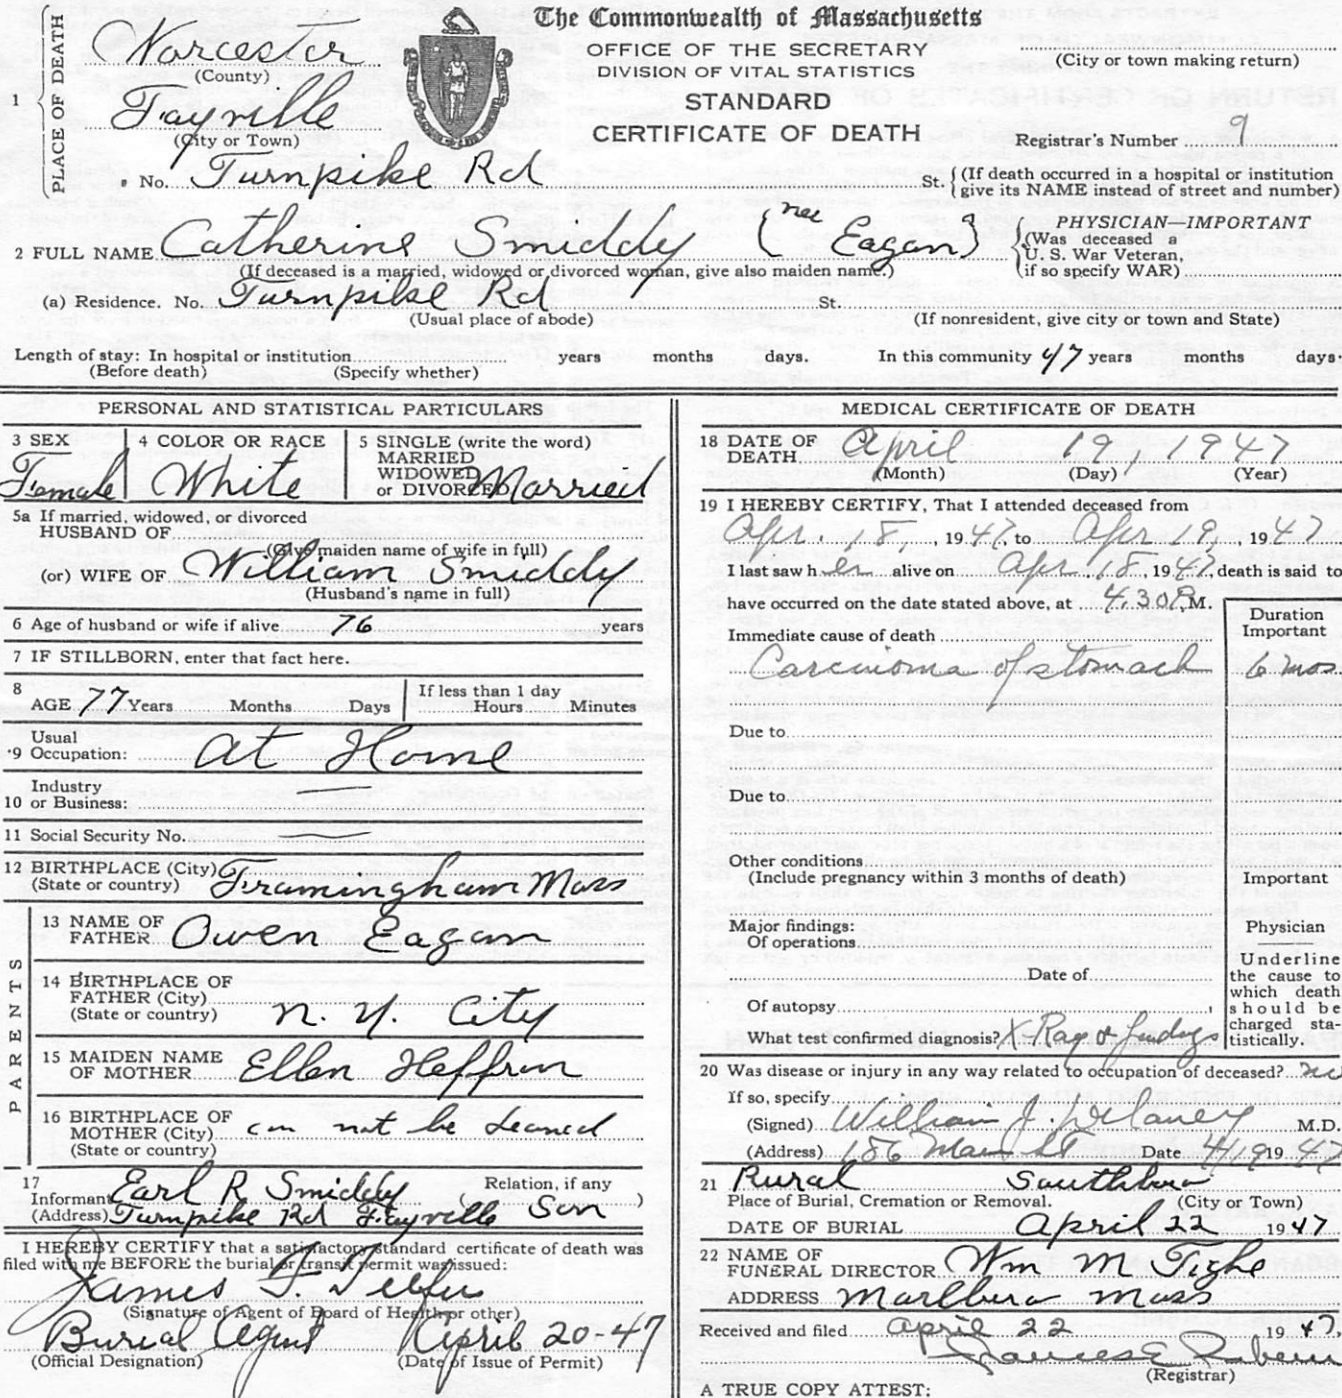 The Commonwealth of Massachusetts
OFFICE OF THE SECRETARY
DIVISION OF VITAL STATISTICS
STANDARD
CERTIFICATE OF DEATH
(City or town making return)
Registrar's Number 9
1 PLACE OF DEATH
Worcester
(County)
Fayville
(City or Town)
No. Turnpike Rd St. (If death occurred in a hospital or institution give its NAME instead of street and number)
2 FULL NAME Catherine Smiddy (nee Eagan)
(If deceased is a married, widowed or divorced woman, give also maiden name.)
PHYSICIAN—IMPORTANT
(Was deceased a
U. S. War Veteran,
if so specify WAR)
(a) Residence. No. Turnpike Rd St.
(Usual place of abode) (If nonresident, give city or town and State)
Length of stay: In hospital or institution years months days. In this community 47 years months days.
(Before death) (Specify whether)
PERSONAL AND STATISTICAL PARTICULARS
3 SEX 4 COLOR OR RACE 5 SINGLE (write the word)
MARRIED
WIDOWED
or DIVORCED
Female White Married
5a If married, widowed, or divorced
HUSBAND OF
(Give maiden name of wife in full)
(or) WIFE OF William Smiddy
(Husband's name in full)
6 Age of husband or wife if alive 76 years
7 IF STILLBORN, enter that fact here.
8 AGE 77 Years Months Days If less than 1 day Hours Minutes
9 Usual Occupation: At Home
10 Industry or Business:
11 Social Security No.
12 BIRTHPLACE (City) Framingham Mass
(State or country)
PARENTS
13 NAME OF FATHER Owen Eagan
14 BIRTHPLACE OF
FATHER (City) N. Y. City
(State or country)
15 MAIDEN NAME
OF MOTHER Ellen Heffrin
16 BIRTHPLACE OF
MOTHER (City) can not be learned
(State or country)
17 Informant Earl R Smiddy Relation, if any
(Address) Turnpike Rd Fayville (Son)
I HEREBY CERTIFY that a satisfactory standard certificate of death was
filed with me BEFORE the burial or transit permit was issued:
James F.
(Signature of Agent of Board of Health or other)
Burial Agent April 20-47
(Official Designation) (Date of Issue of Permit)
MEDICAL CERTIFICATE OF DEATH
18 DATE OF DEATH April 19, 1947
(Month) (Day) (Year)
19 I HEREBY CERTIFY, That I attended deceased from
Apr. 18, 1947, to Apr 19, 1947
I last saw her alive on Apr. 18, 1947, death is said to
have occurred on the date stated above, at 4.30 P.M.
Duration
Important
Immediate cause of death
Carcinoma of stomach 6 mos.
Due to
Due to
Other conditions
(Include pregnancy within 3 months of death)
Important
Major findings:
Of operations
Date of
Of autopsy
What test confirmed diagnosis? X-Ray & findings
Physician
Underline
the cause to
which death
should be
charged sta-
tistically.
20 Was disease or injury in any way related to occupation of deceased? no
If so, specify
(Signed) William J. Delaney M.D.
(Address) 186 Main St Date 4/19 1947
21 Rural Southboro
Place of Burial, Cremation or Removal. (City or Town)
DATE OF BURIAL April 22 1947
22 NAME OF
FUNERAL DIRECTOR Wm M Tighe
ADDRESS Marlboro Mass
Received and filed April 22 1947.
(Registrar)
A TRUE COPY ATTEST: